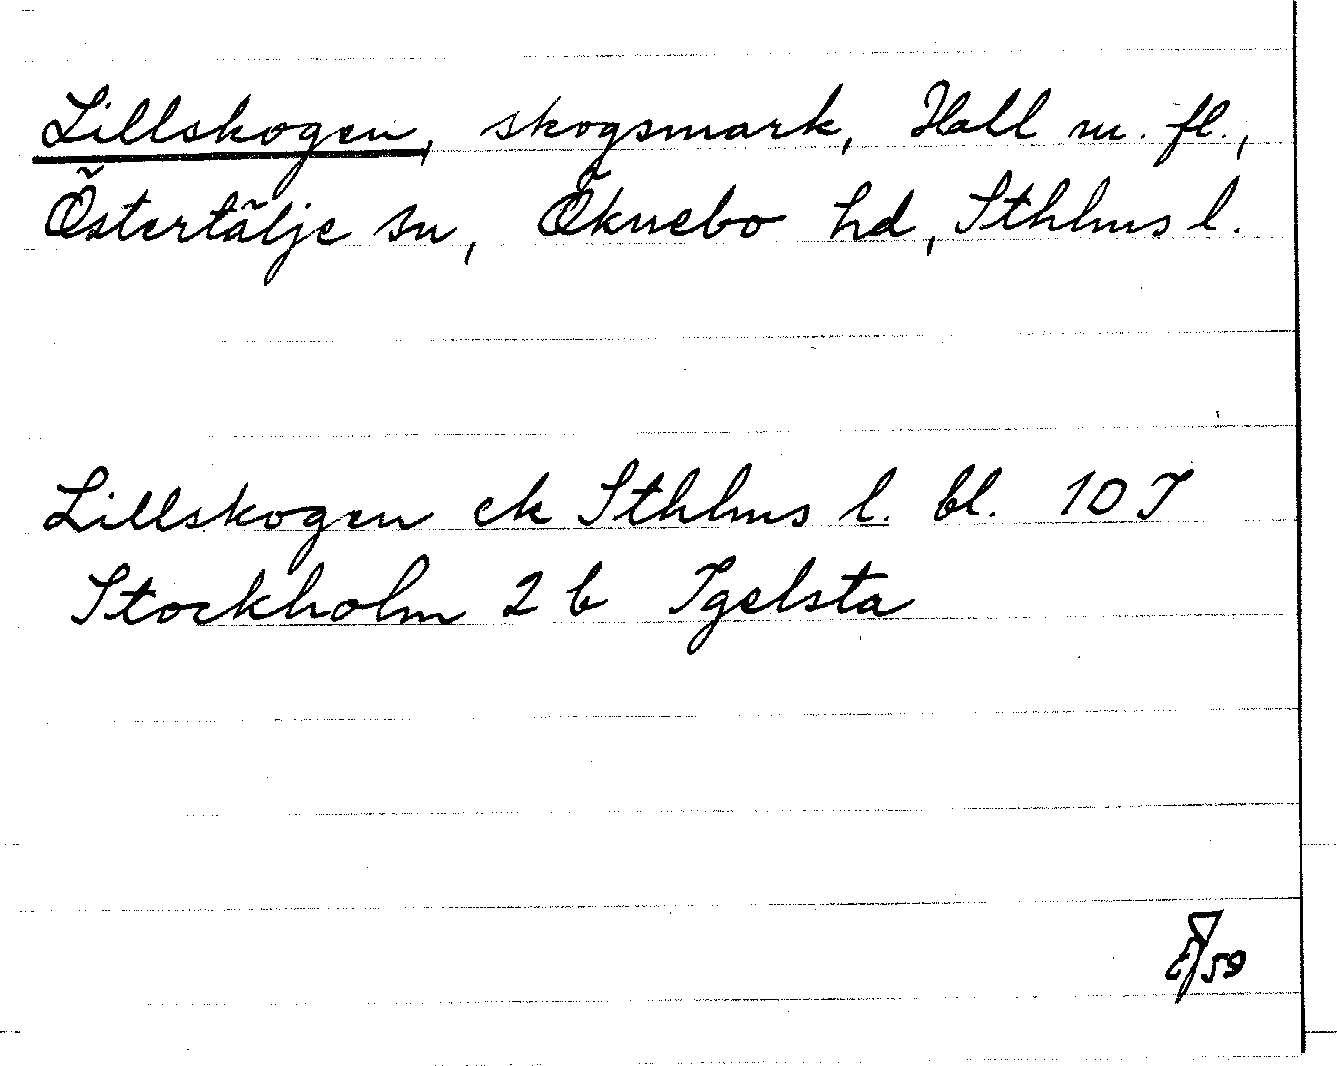 Lillskogen, skogsmark, Hall m. fl.,
Östertälje sn, Öknebo hd, Sthlms l.
Lillskogen ek Sthlms l. bl. 10 J
Stockholm 2 b Igelsta
59